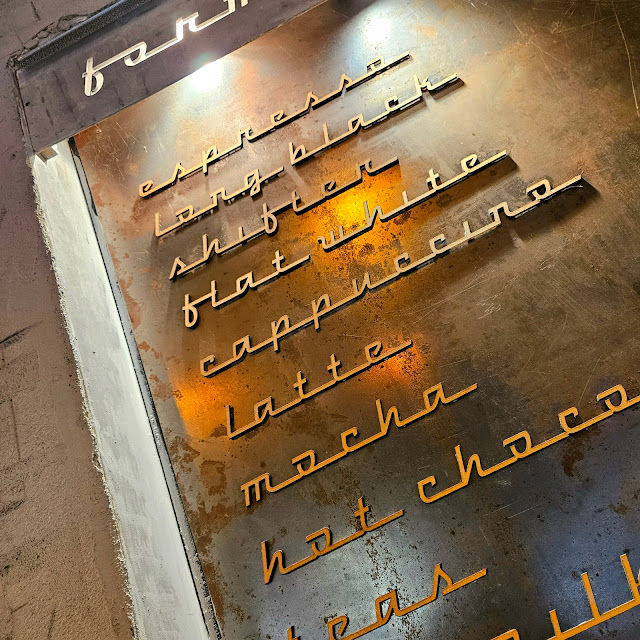 espresso
long black
shifter
flat white
cappuccino
latte
mocha
hot choco
teas